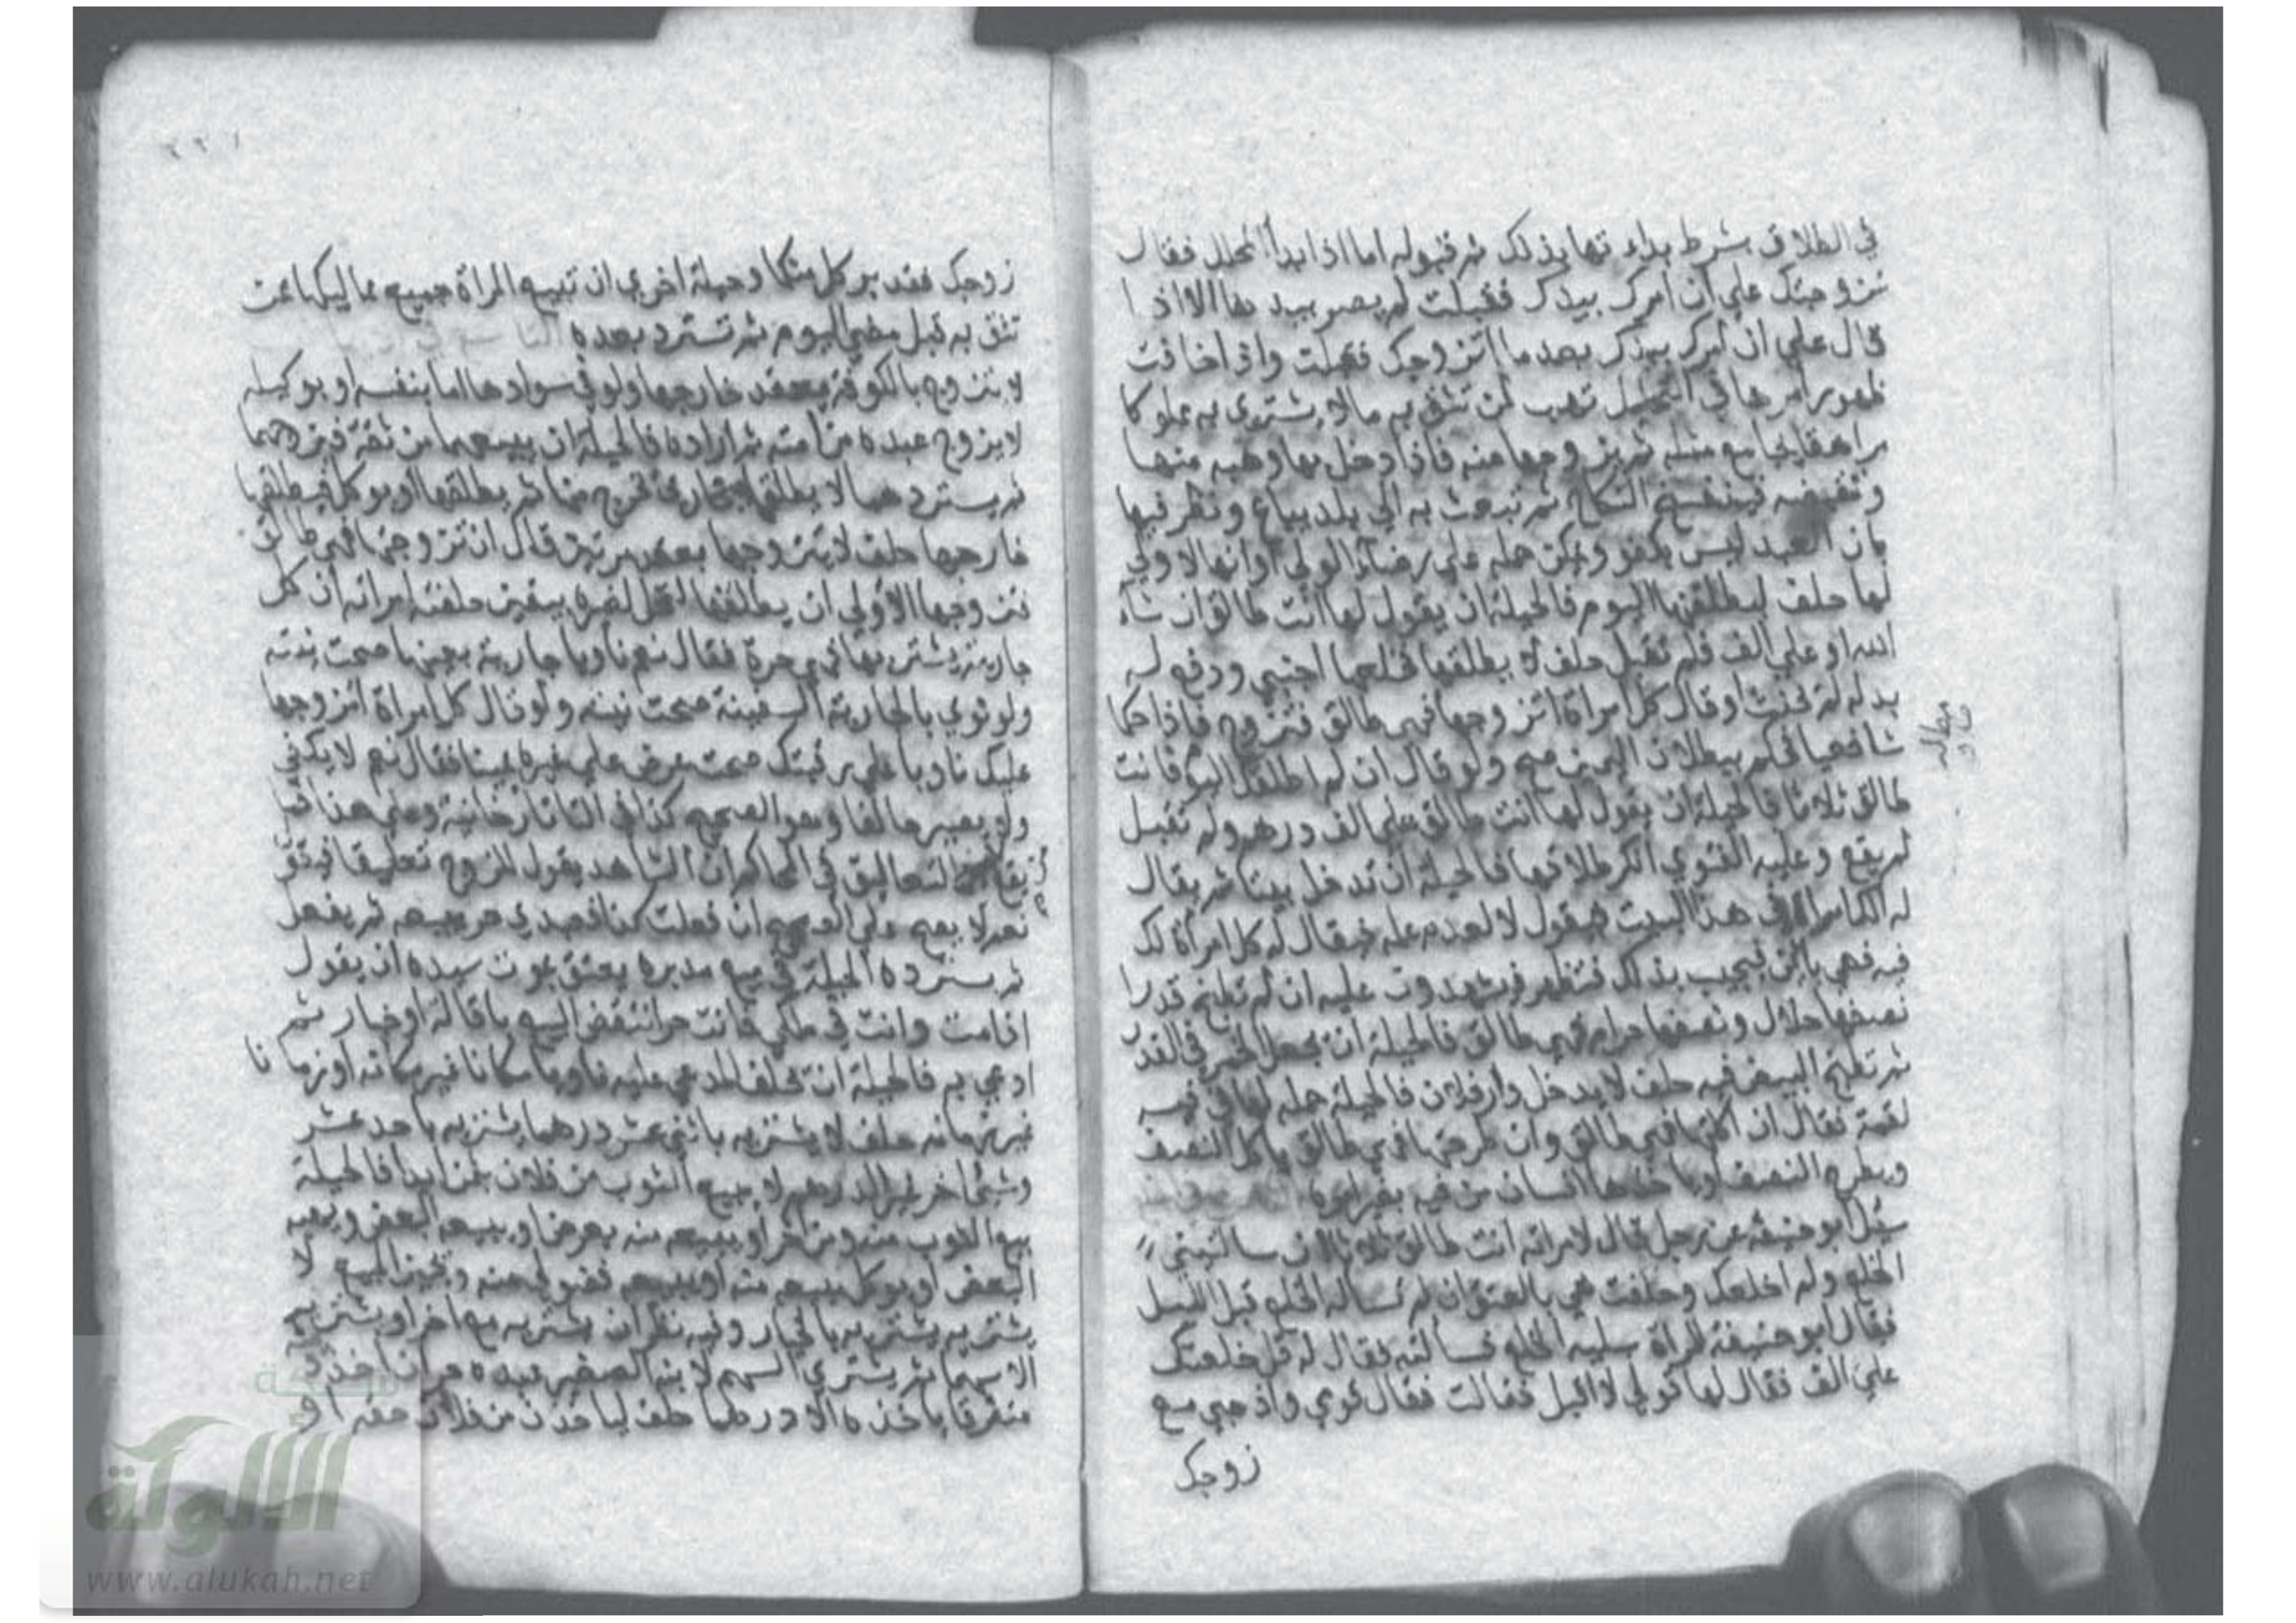 في الطلاق بشرط بداءتها بذلك ثم قبوله اما اذا بدأ المحلل فقال
تزوجتك علي ان امرك بيدك فقبلت لم يصر بيدها الا اذا
قال علي ان امرك بيدك بعد ما اتزوجك فقبلت واذا خافت
ظهور امرها في التحليل تهب لمن تثق به مالا يشتري به مملوكا
مراهقا يجامع مثله ثم يزوجها منه فاذا دخل بها وهبه منها
وتقبضه فينفسخ النكاح ثم تبعث به الي بلد يباع ونظر فيها
بان العبد ليس بكفو ويمكن حمله علي رضاء الولي او انها لا ولي
لها حلف ليطلقنها اليوم فالحيلة ان يقول لها انت طالق ان شاء
الله او علي الف فلم تقبل حلف لا يطلقها فخلعها اجنبي ودفع له
بدله لم يحنث او قال كل امراة اتزوجها فهي طالق فتزوج فاذا حكما
شافعيا فحكم ببطلان اليمين صح ولو قال ان لم اطلقك اليوم فانت
طالق ثلاثا فالحيلة ان يقول لها انت طالق علي الف درهم ولم تقبل
لم يقع وعليه الفتوي انكر طلاقها فالحيلة ان تدخل بيتا ثم يقال
له الك امراة في هذا البيت فيقول لا لعدم علمه فيقال له كل امراة لك
فيه فهي بائن فيجيب بذلك فتظهر فيشهدون عليه ان لم تطبخ قدرا
نصفها حلال ونصفها حرام فهي طالق فالحيلة ان تجعل الخمر في القدر
ثم تطبخ البيض فيه حلف لا يدخل دار فلان فالحيلة حمله لها في فيه
لقمة فقال ان اكلتها فهي طالق وان طرحتها فهي طالق ياكل النصف
ويطرح النصف او ياخذها انسان من فيه بغير امره
سئل ابو حنيفة عن رجل قال لامراته انت طالق ثلاثا ان سالتيني
الخلع ولم اخلعك وحلفت هي بالعتق ان لم تساله الخلع قبل الليل
فقال ابو حنيفة للمراة سليه الخلع فسالته فقال له قل خلعتك
علي الف فقال لها قولي لا اقبل فقالت فقال قومي واذهبي مع
زوجك
زوجك فقد بر كل منكما وحيلة اخري ان تبيع المراة جميع مماليكها ممن
تثق به قبل مضي اليوم ثم تسترد بعده
لا يتزوج بالكوفة يعقد خارجها ولو في سوادها اما بنفسه او بوكيله
لا يزوج عبده من امته ثم اراده فالحيلة ان يبيعهما من ثقة فيزوجهما
ثم يستردهما لا يطلقها ببخاري يخرج منها ثم يطلقها او يوكل فيطلقها
خارجها حلف لا يتزوجها بعد مرتين قال ان تزوجتها فهي طالق
تزوجها الاولي ان يطلقها لتحل لغيره بيقين حلفته امراته ان كل
جارية تشتريها فهي حرة فقال نعم ناويا جارية بعينها صحت نيته
ولو نوي بالجارية السفينة صحت نيته ولو قال كل امراة اتزوجها
عليك ناويا علي رقبتك صحت عرض علي غيره يمينا فقال نعم لا يكفي
ولا يصير حالفا وهو الصحيح كذا في التاتارخانية وعلي هذا فما
يقع من التعاليق في المحاكم ان الشاهد يقول للزوج تعليقا فيقول
نعم لا يصح علي الصحيح ان فعلت كذا فعبدي حر يبيعه ثم يفعل
ثم يسترده الحيلة في بيع مدبره يعتق بموت سيده ان يقول
اذا مت وانت في ملكي فانت حر انتقض البيع باقالة او خيار ثم
ادعي به فالحيلة ان تحلف للمدعي عليه ناويا مكانا غير مكانه او زمانا
غير زمانه حلف لا يشتريه باثني عشر درهما يشتريه باحد عشر
وشئ اخر غير الدراهم لا يبيع الثوب من فلان بثمن ابدا فالحيلة
بيع الثوب منه ومن اخر او يبيعه منه بعرض او يبيعه البعض ويهبه
البعض او يوكل ببيعه منه او يبيعه فضولي منه ويجيز البيع لا
يشتريه يشتريه بالخيار وفيه نظر ان يشتريه مع اخر او يشتريه
الا سهما ثم يشتري السهم لابنه الصغير عبده حر ان اخذ
متفرقا ياخذه الا درهما حلف لياخذن من فلان حقه